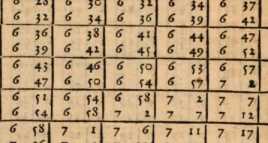 6 30 6 32 6 34 6 37
6 32 6 34 6 36 6 39 6 42
6 36 6 38 6 41 6 44 6 47
6 39 6 42 6 45 6 49 6 52
6 43 6 46 6 50 6 53 6 57
6 47 6 50 6 54 6 57 7 2
6 51 6 54 6 58 7 2 7 7
6 54 6 58 7 2 7 7 7 12
6 58 7 1 7 6 7 11 7 17